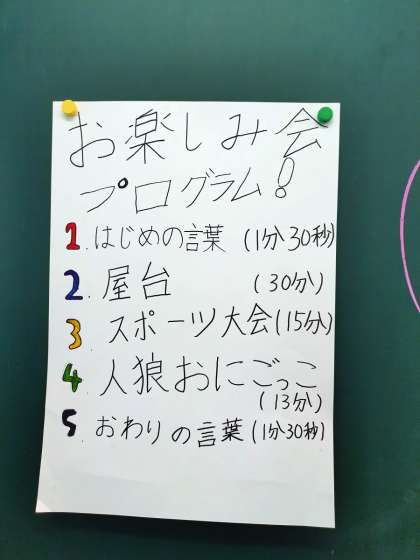 お楽しみ会
プログラム!
1.はじめの言葉(1分30秒)
2.屋台(30分)
3 スポーツ大会(15分)
4 人狼おにごっこ
(13分)
5 おわりの言葉(1分30秒)